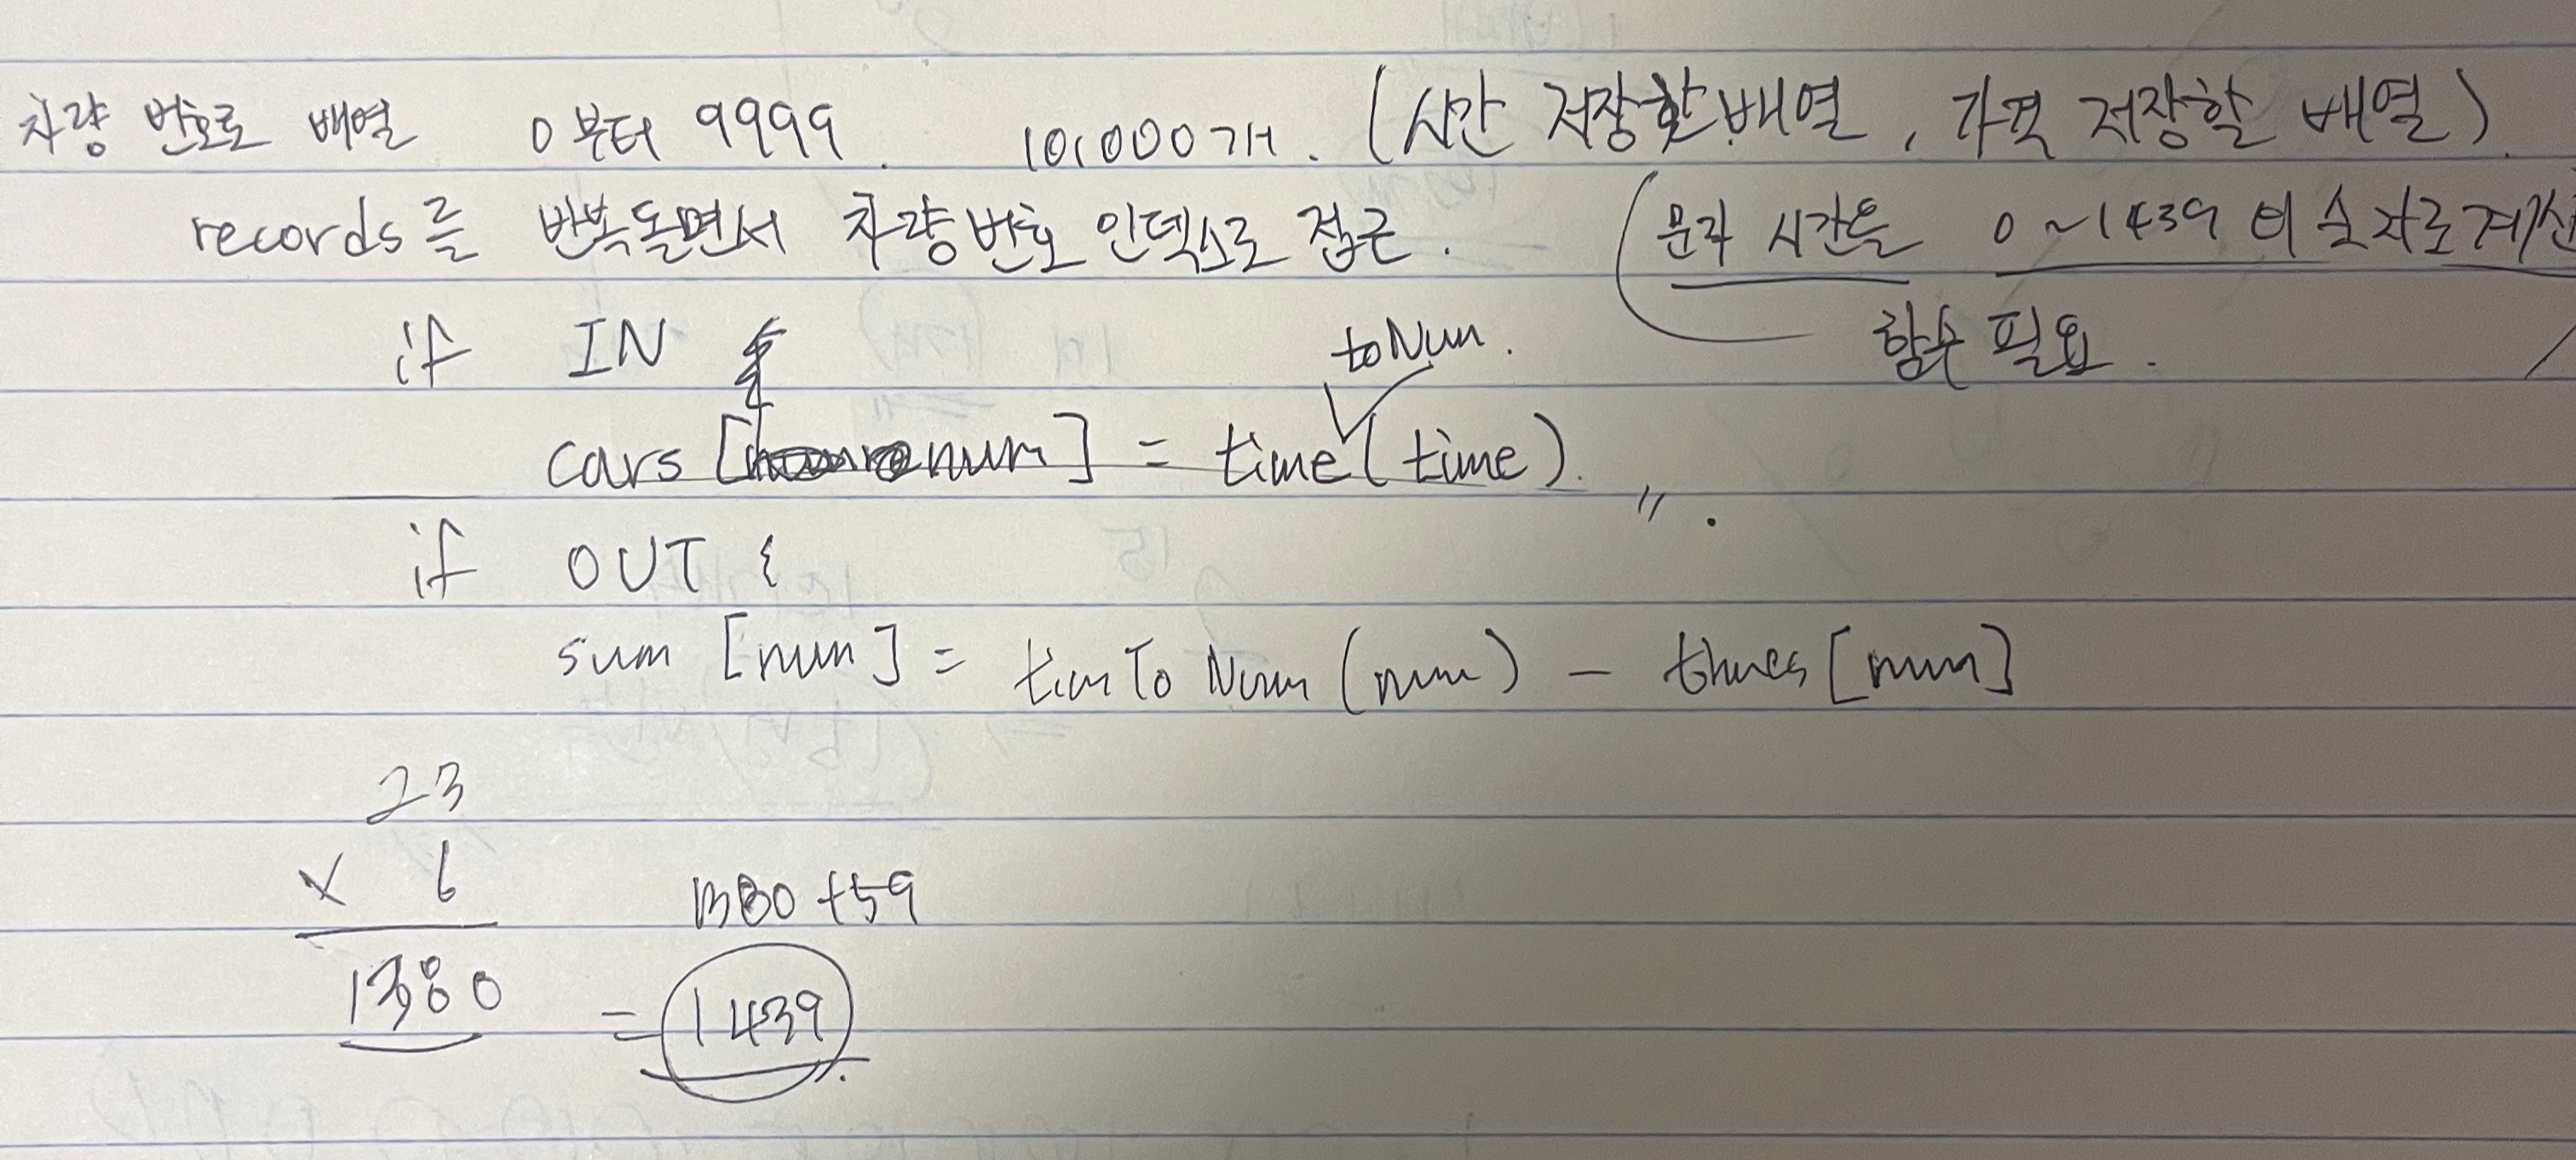 차량 번호로 배열 0부터 9999. 10,000개. (시간 저장할 배열, 가격 저장할 배열).
records를 반복돌면서 차량번호 인덱스로 접근. (문자 시간을 0~1439 의 숫자로 계산
함수 필요.
if IN {
toNum.
cars [num] = time(time).
〃.
if OUT {
sum [num] = timToNum (num) - times [num]
23
x 6
1380
1380 +59
= 1439